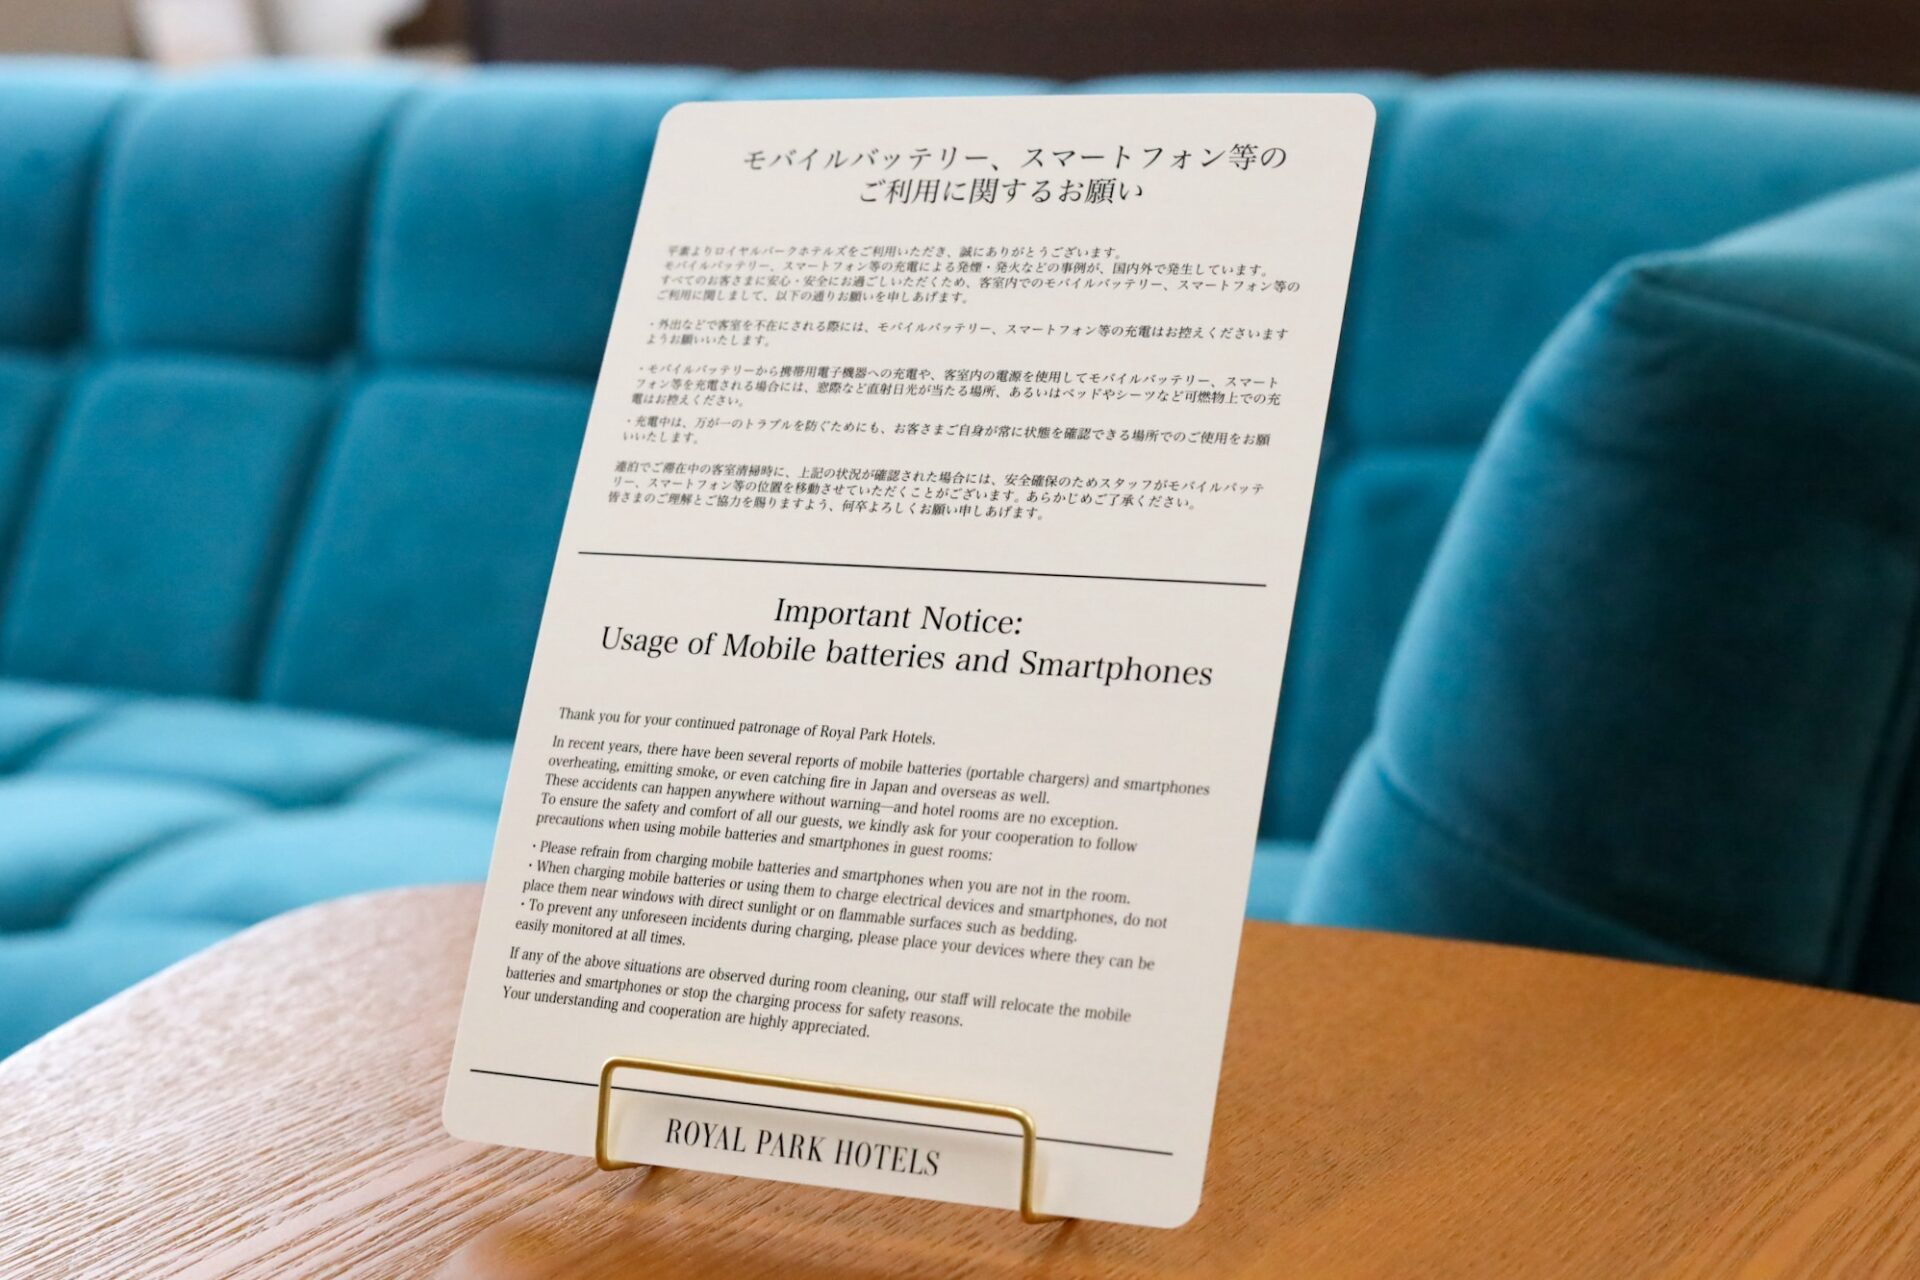 モバイルバッテリー、スマートフォン等の
ご利用に関するお願い
平素よりロイヤルパークホテルズをご利用いただき、誠にありがとうございます。
モバイルバッテリー、スマートフォン等の充電による発煙・発火などの事例が、国内外で発生しています。
すべてのお客さまに安心・安全にお過ごしいただくため、客室内でのモバイルバッテリー、スマートフォン等の
ご利用に関しまして、以下の通りお願いを申しあげます。
・外出などで客室を不在にされる際には、モバイルバッテリー、スマートフォン等の充電はお控えくださいます
ようお願いいたします。
・モバイルバッテリーから携帯用電子機器への充電や、客室内の電源を使用してモバイルバッテリー、スマート
フォン等を充電される場合には、窓際など直射日光が当たる場所、あるいはベッドやシーツなど可燃物上での充
電はお控えください。
・充電中は、万が一のトラブルを防ぐためにも、お客さまご自身が常に状態を確認できる場所でのご使用をお願
いいたします。
連泊でご滞在中の客室清掃時に、上記の状況が確認された場合には、安全確保のためスタッフがモバイルバッテ
リー、スマートフォン等の位置を移動させていただくことがございます。あらかじめご了承ください。
皆さまのご理解とご協力を賜りますよう、何卒よろしくお願い申しあげます。
Important Notice:
Usage of Mobile batteries and Smartphones
Thank you for your continued patronage of Royal Park Hotels.
In recent years, there have been several reports of mobile batteries (portable chargers) and smartphones
overheating, emitting smoke, or even catching fire in Japan and overseas as well.
These accidents can happen anywhere without warning—and hotel rooms are no exception.
To ensure the safety and comfort of all our guests, we kindly ask for your cooperation to follow
precautions when using mobile batteries and smartphones in guest rooms:
・Please refrain from charging mobile batteries and smartphones when you are not in the room.
・When charging mobile batteries or using them to charge electrical devices and smartphones, do not
place them near windows with direct sunlight or on flammable surfaces such as bedding.
・To prevent any unforeseen incidents during charging, please place your devices where they can be
easily monitored at all times.
If any of the above situations are observed during room cleaning, our staff will relocate the mobile
batteries and smartphones or stop the charging process for safety reasons.
Your understanding and cooperation are highly appreciated.
ROYAL PARK HOTELS